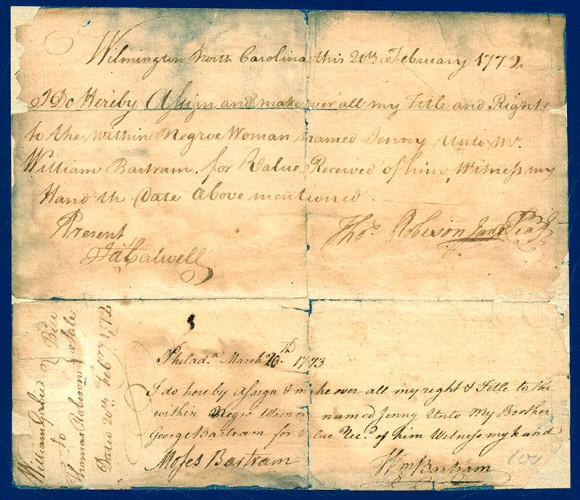 Wilmington North Carolina this 20th February 1772
I Do Hereby Assign and make over all my Title and Right
to the within Negroe Woman named Jenny Unto Mr.
William Bartram, for Value Received of him, Witness my
Hand the Date Above mentioned.
Present
Thos. Robeson Junr
Jas Calwell
Philada. March 26th 1773
I do hereby assign & make over all my right & Title to the
within Negro Women named Jenny Unto My Brother
George Bartram for Value Recd. of him Witness my hand
Moses Bartram
Wm Bartram
100
William Bill
to Sale
Thomas Robeson
Dated 20th Febry 1772